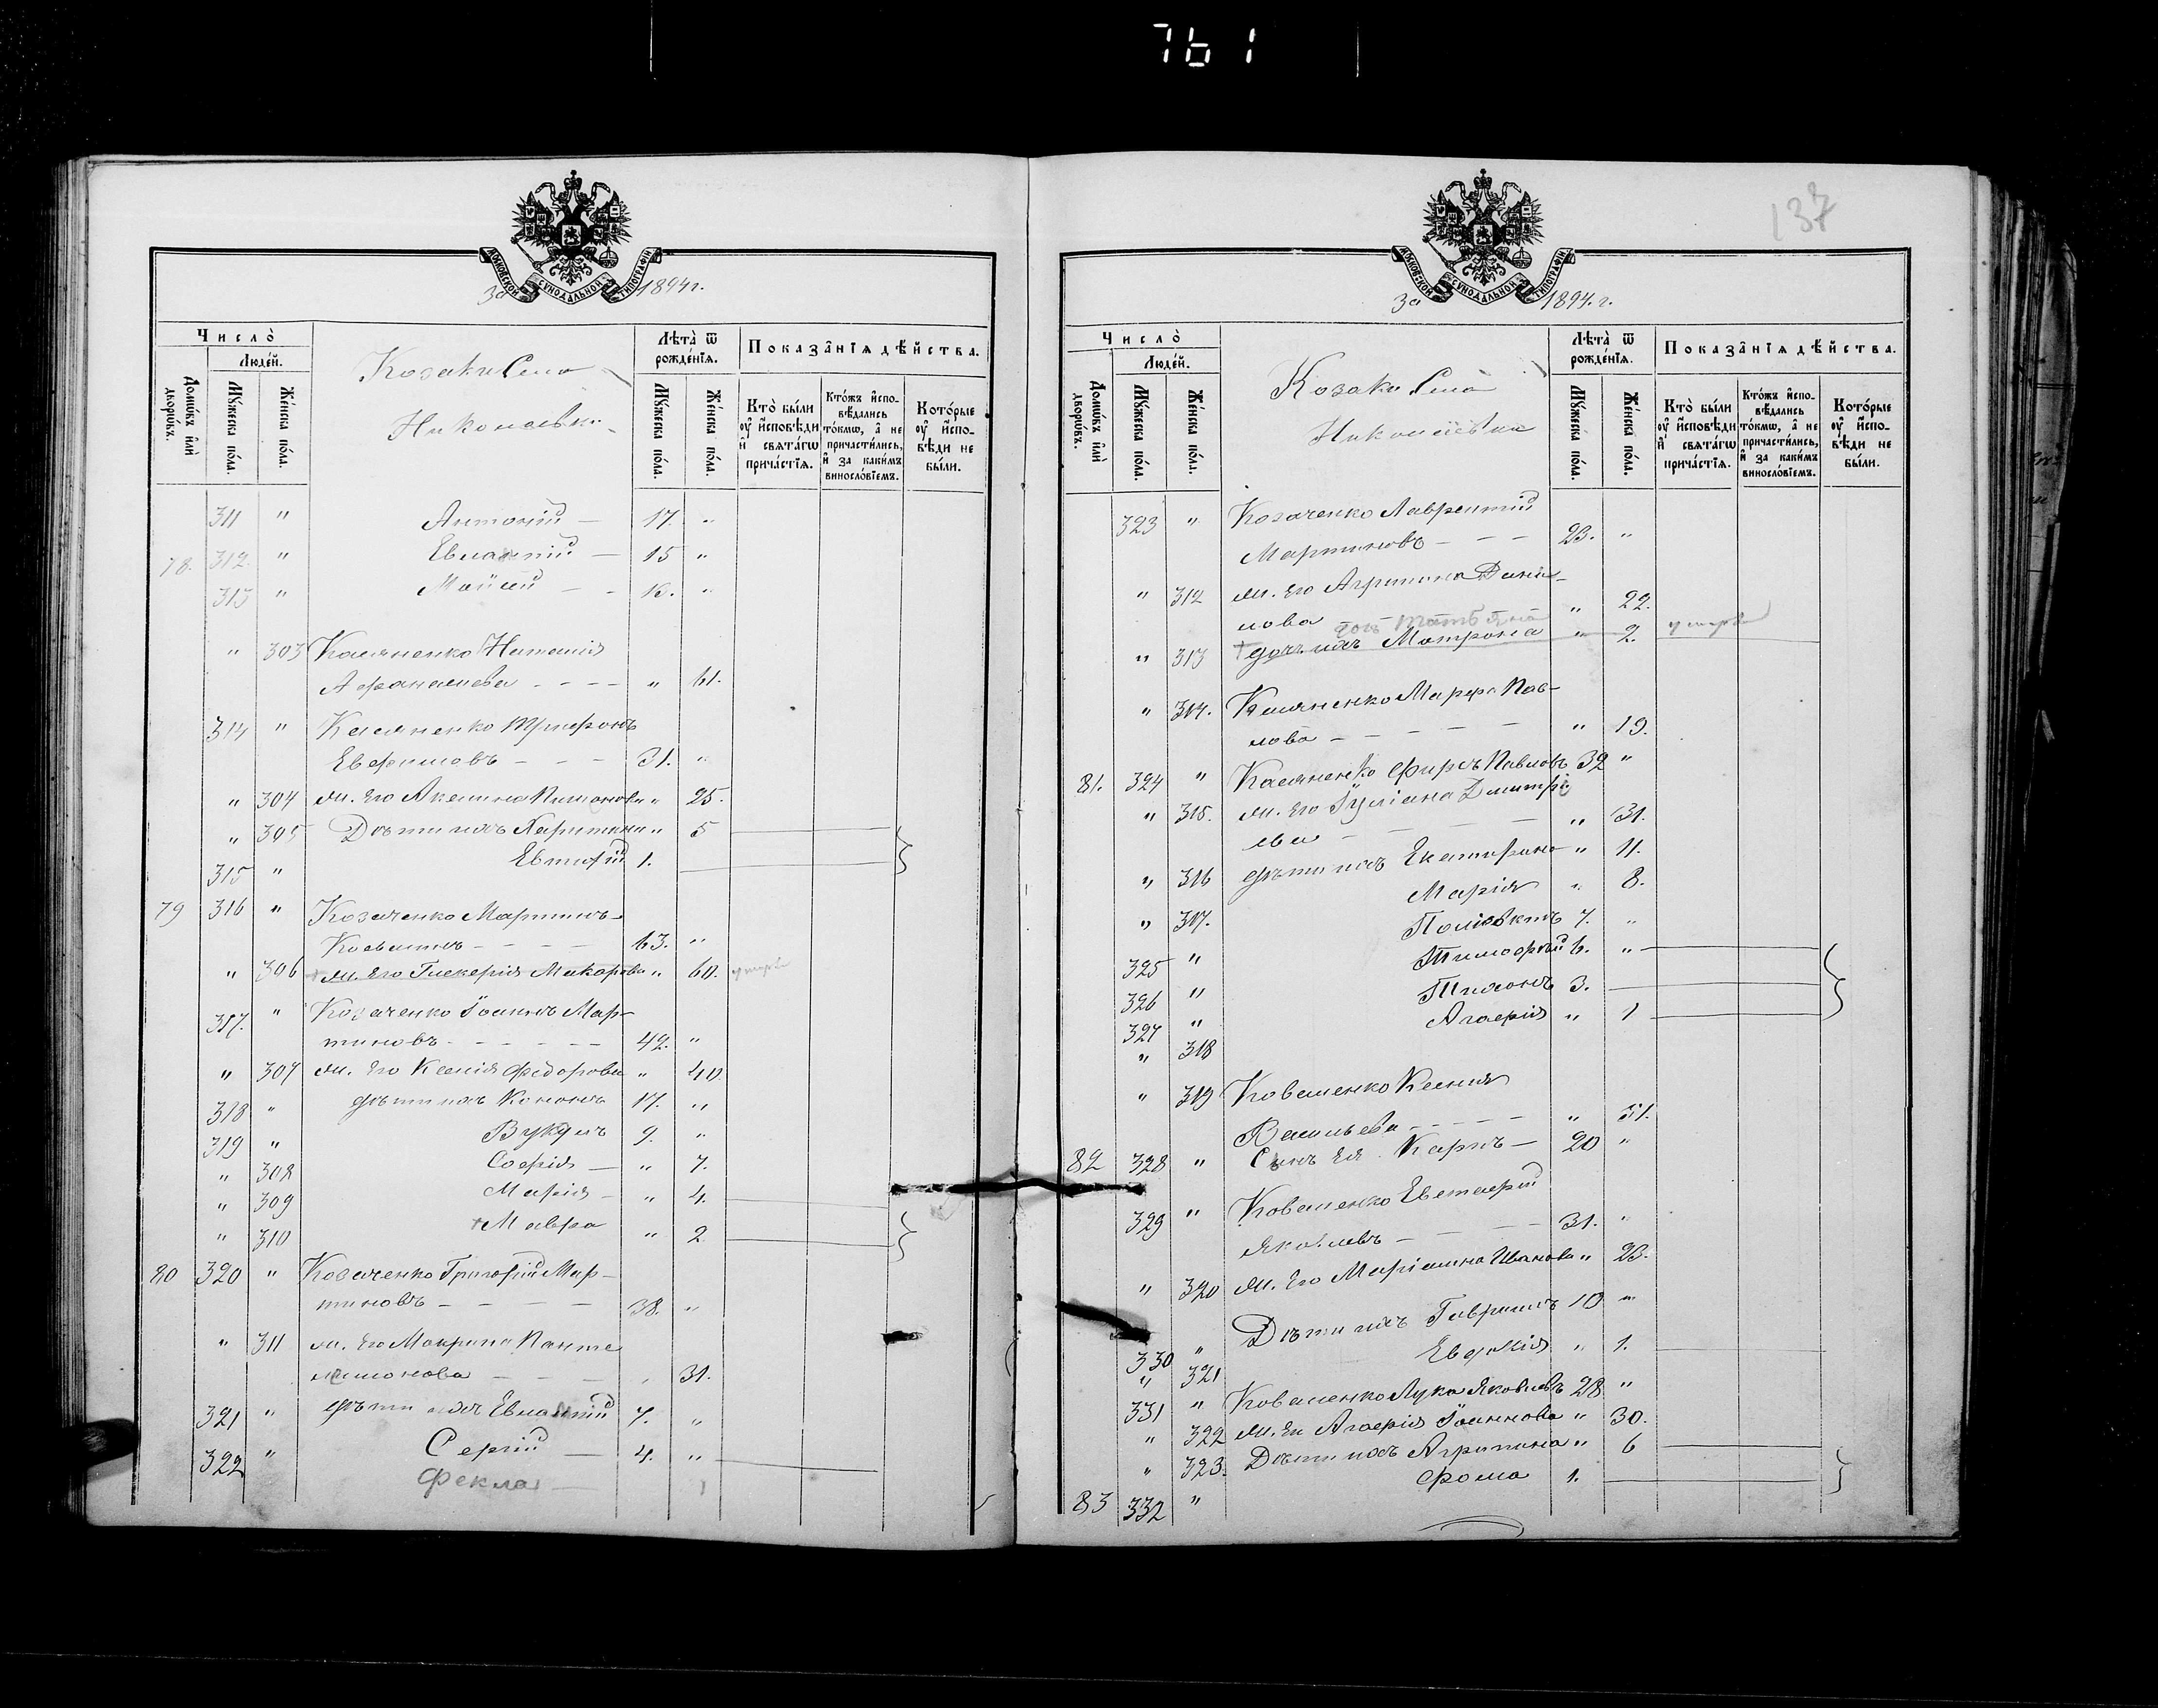 761
137
МОСКОВСКОЙ СѴНОДАЛЬНОЙ ТИПОГРАФІИ
За 1894 г.
Число̀
Люде́й.
Домѡ́въ и҆лѝ дворѡ́въ.
Мꙋ́жеска по́ла.
Же́нска по́ла.
Козаки Села
Николаевки
Лѣта̀ ѿ рожде́нїѧ.
Мꙋ́жеска по́ла.
Же́нска по́ла.
Показа̂нїѧ дѣ́йства.
Кто̀ бы́ли оу҆ и҆сповѣди и҆ свѧта́гѡ прича́стїѧ.
Кто́жъ и҆спо-вѣ́дались то́кмѡ, а҆ не причасти́лись, и҆ за каки́мъ винослόвїемъ.
Кото́рые оу҆ и҆спо-вѣди не бы́ли.
311 " Антоній — 17. "
78. 312. " Евлампій — 15 "
313 " Моисей — "
" 303 Касяненко Наталія
Афанасіева - - - - " 61.
314 " Касяненко Трифонъ
Евфимовъ - - - 31. "
" 304 ж. Его Акилина " 25.
" 305 Дѣти ихъ Харитина " 5
315 " Евтихій 1.
79 316 " Козаченко Мартинъ
Косминъ - - - - 63. "
" 306 ж. Его Гликерія Макарова " 60. умерла
317. " Козаченко Іоаннъ Мар-
тиновъ - - - - - 42. "
" 307 ж. Его Ксенія Федорова " 40.
318 " дѣти ихъ Кононъ 17. "
319 " Вукулъ 9. "
" 308 Софія — " 7.
" 309 Марія - " 4.
" 310 +Мавра " 2
80 320 " Козаченко Григорій Мар-
тиновъ - - - - 38. "
" 311 ж. Его Макрина Панте
леимонова - - - " 31.
321 " дѣти ихъ Евлампій 7. "
322 " Сергій — 4. "
Фекла — 1
МОСКОВСКОЙ СѴНОДАЛЬНОЙ ТИПОГРАФІИ
За 1894. г.
Число̀
Люде́й.
Домѡ́въ и҆лѝ дворѡ́въ.
Мꙋ́жеска по́ла.
Же́нска по́ла.
Козаки Села
Николаевки
Лѣта̀ ѿ рожде́нїѧ.
Мꙋ́жеска по́ла.
Же́нска по́ла.
Показа̂нїѧ дѣ́йства.
Кто̀ бы́ли оу҆ и҆сповѣди и҆ свѧта́гѡ прича́стїѧ.
Кто́жъ и҆спо-вѣ́дались то́кмѡ, а҆ не причасти́лись, и҆ за каки́мъ винослόвїемъ.
Кото́рые оу҆ и҆спо-вѣди не бы́ли.
323 " Козаченко Лаврентій
Мартиновъ - - - 23. "
" 312 ж. Его Агрипина Дани-
лова " 22.
дочь Татьяна
" 313 +дочь ихъ Матрона " 2. умерла
" 314. Касяненко Марфа Пав-
лова - - - - - " 19.
81. 324 " Касяненко Фирсъ Павловъ 32 "
" 315. ж. Его Іуліана Димитрі
ева - - - - " 31.
" 316 дѣти ихъ Екатерина " 11.
" 317. Марія " 8.
325 " Поліевктъ 7. "
326 " Тимофей 6. "
327 " Тихонъ 3.
" 318 Агафія " 1
" 319 Коваленко Ксенія
Васильева - - - - " 51.
82 328 " Сынъ Ея Карпъ — 20 "
329 " Коваленко Евстафій
Яковлевъ - - - 31. "
" 320 ж. Его Маріамна Иванова " 23.
330 " Дѣти ихъ Гавріилъ 10 "
" 321 Евдокія " 1.
331 " Коваленко Лука Яковлевъ 28 "
" 322 ж. Ег Агафія Іоаннова " 30.
" 323. Дѣти ихъ Агрипина " 6
83 332 " Фома 1.